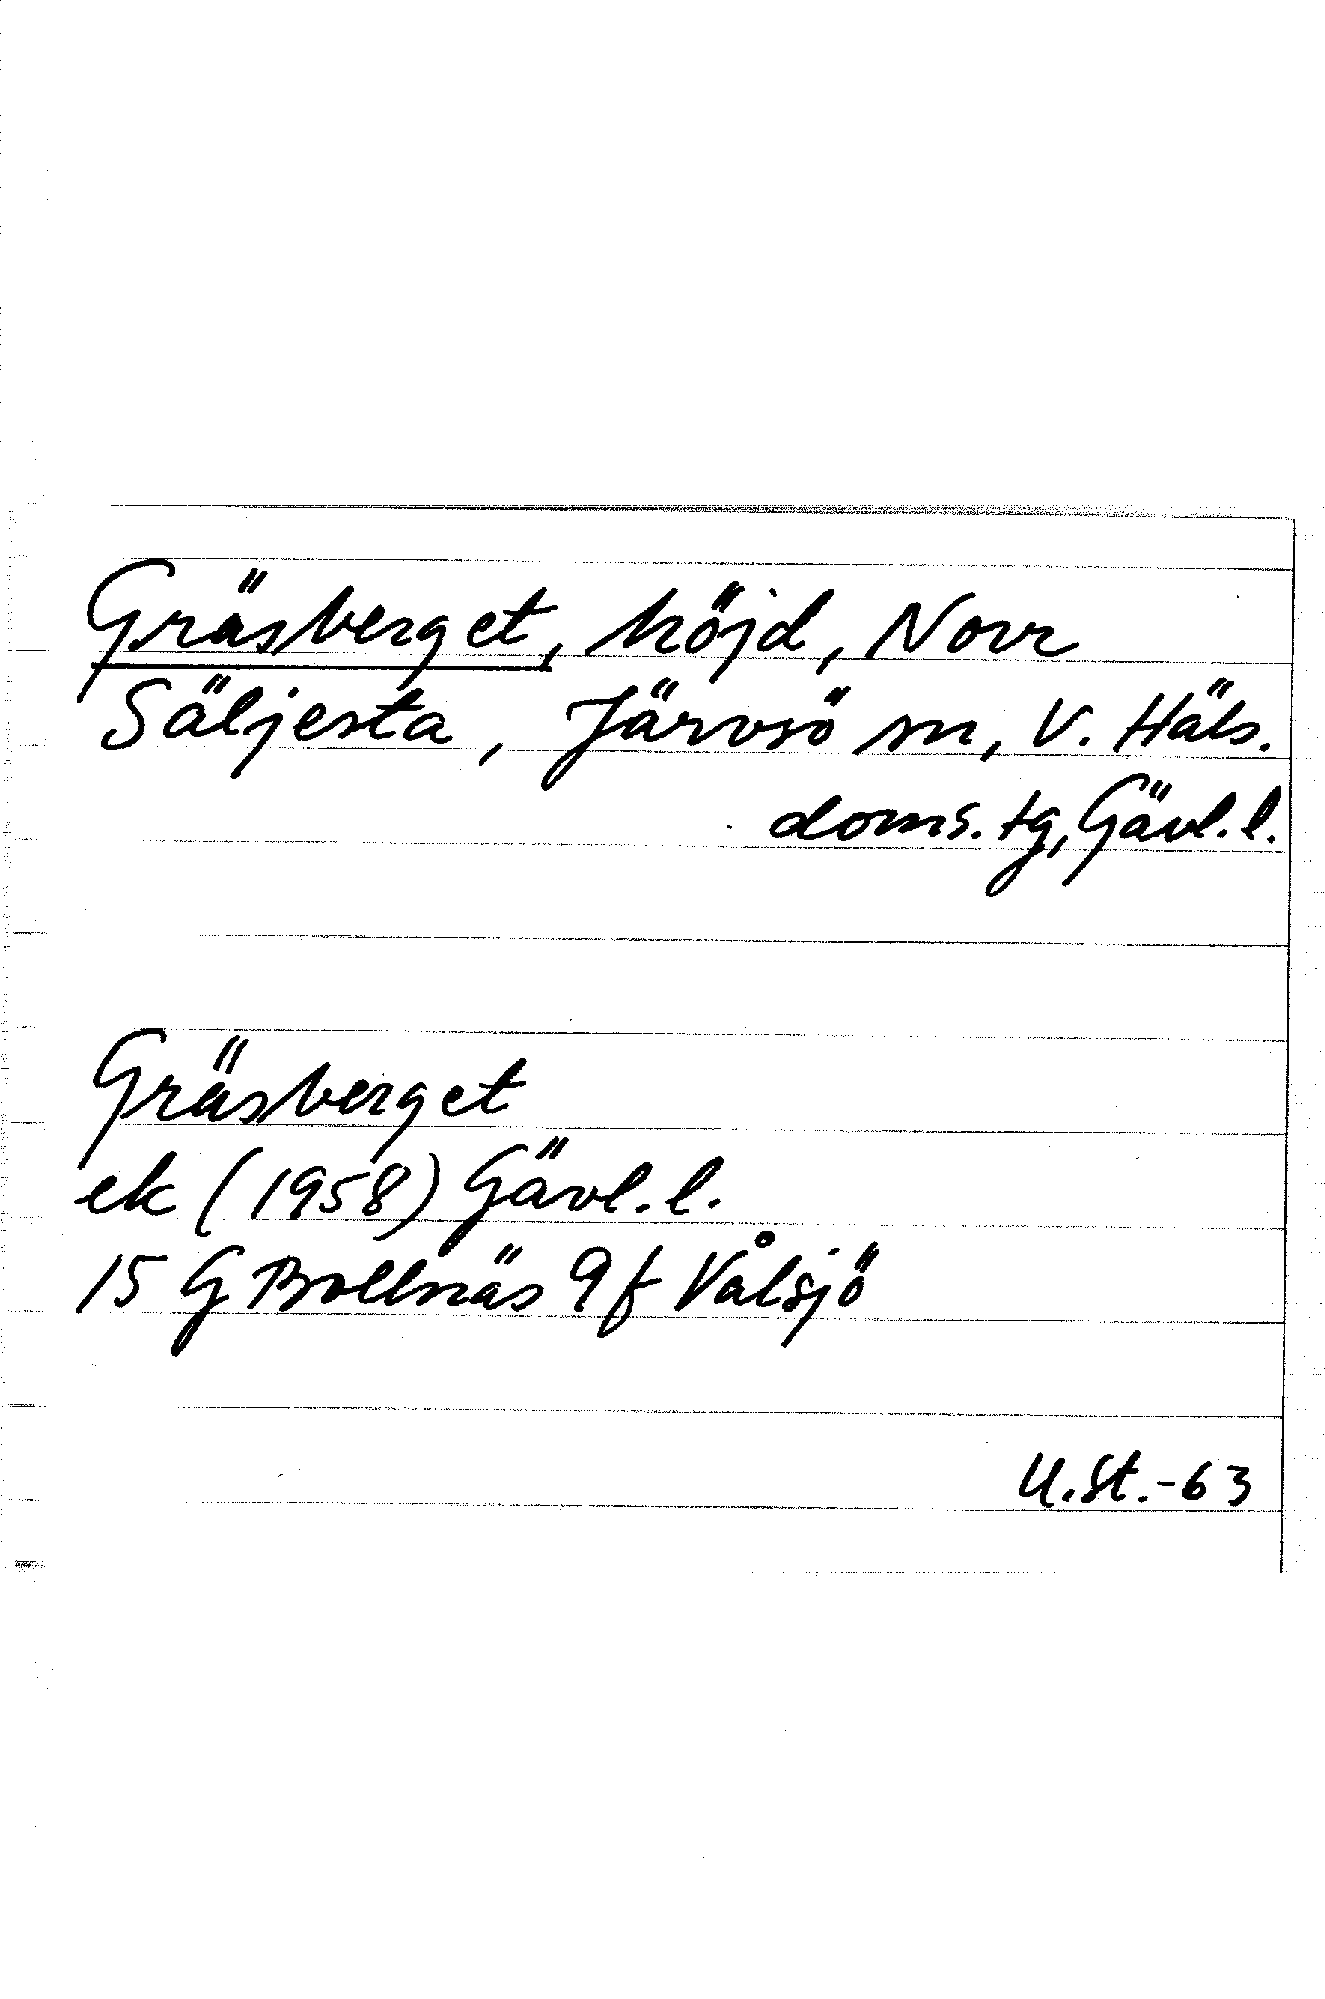 Gräsberget, höjd, Norr
Säljesta, Järvsö sn, V. Häls.
doms. tg, Gävl. l.
Gräsberget
ek (1958) Gävl. l.
15 G Bollnäs 9f Vålsjö
U.St.-63